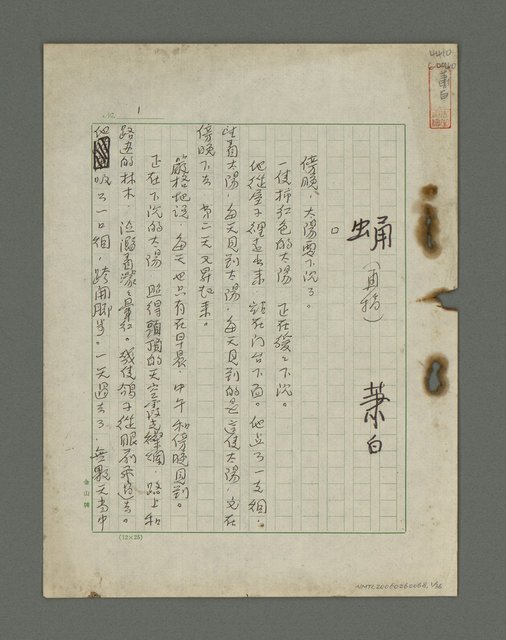 蛹（直稿）
蕭白
傍晚，太陽要下沉了。
一隻柿紅色的太陽，正在緩々下沉。
他從屋子裡走出來，站在門台下面。他点了一支烟，
望着太陽，每天見到太陽，每天見到的是這隻太陽，它在
傍晚下去，第二天又昇起來。
嚴格地說，每天也只有在早晨、中午和傍晚見到。
正在下沉的太陽，照得頭頂的天空霞光燦爛，路上和
路边的林木，泣濺着濛々暈紅。幾隻鴿子從眼前飛過去。
他吸了一口烟，跨開脚步。一天過去了，無數天当中
No. 1
金山牌
(12×25)
蕭白
NMTL20060260068, 1/36